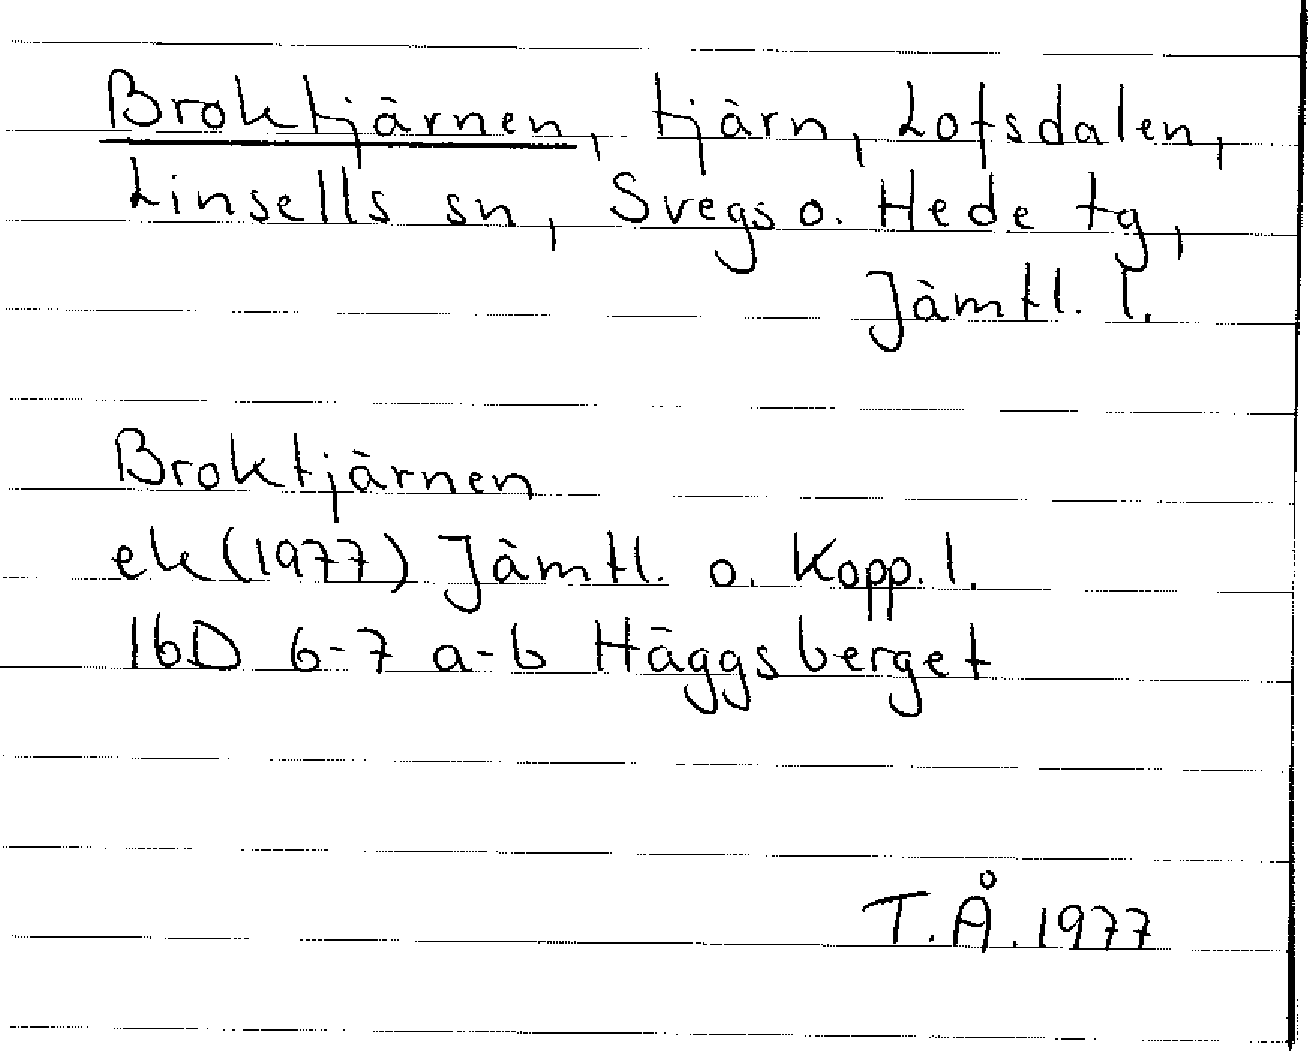 Broktjärnen, tjärn, Lofsdalen,
Linsells sn, Svegs o. Hede tg,
Jämtl. l.
Broktjärnen
ek (1977) Jämtl. o. Kopp. l.
16D 6-7 a-b Häggsberget
T.Å. 1977